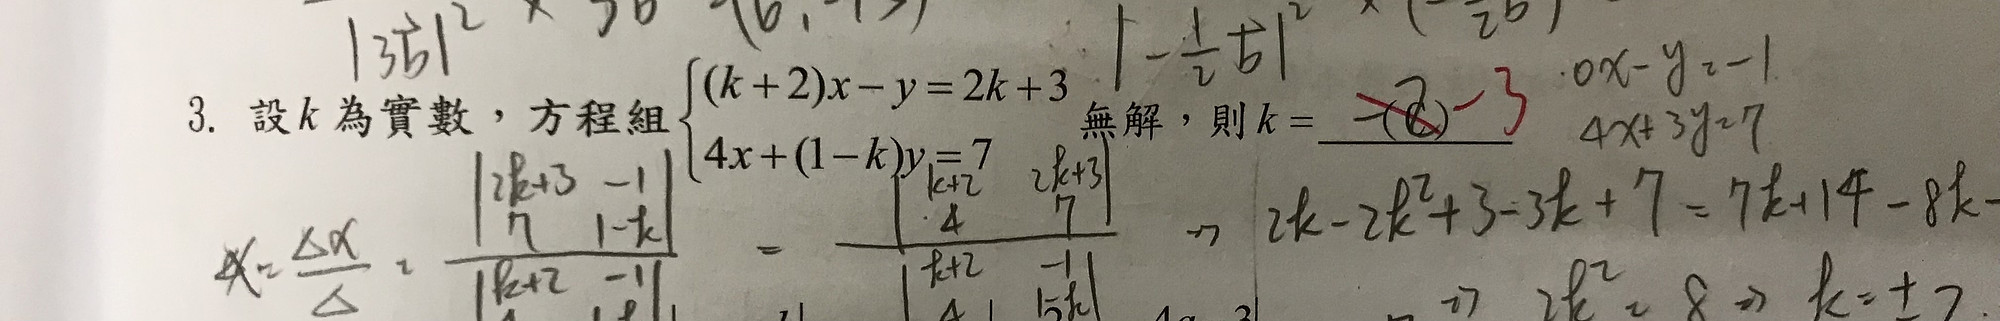 |3b|² × 3b
|-1/2 b|²
3. 設 k 為實數，方程組 { (k+2)x-y=2k+3
4x+(1-k)y=7 無解，則 k = -2 -3
0x-y=-1
4x+3y=7
x = Δx/Δ = |2k+3 -1
7 1-k| / |k+2 -1| = |k+2 2k+3
4 7| / |k+2 -1
4 1-k| ⇒ 2k-2k²+3-3k+7=7k+14-8k-
⇒ 2k²=8 ⇒ k=±2.